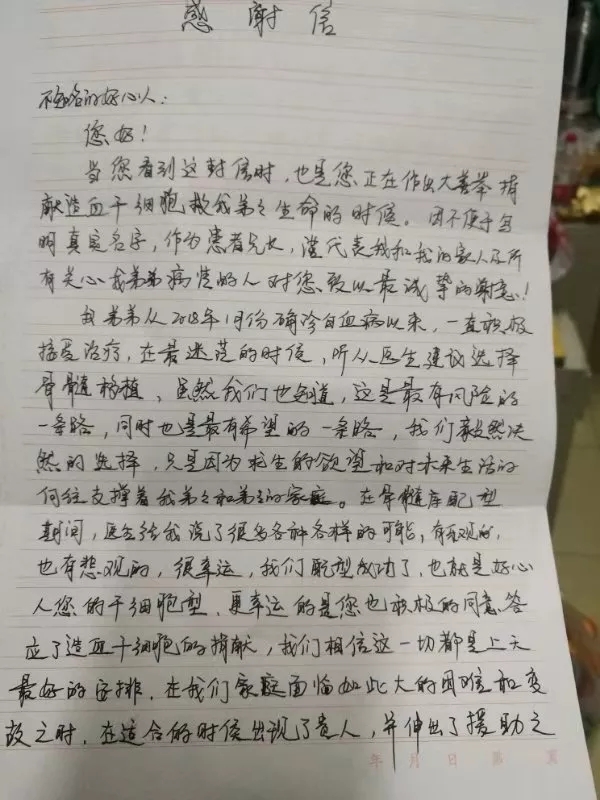 感谢信
不知名的好心人:
您好!
当您看到这封信时,也是您正在作出大善举捐
献造血干细胞救我弟弟生命的时候。因不便于写
明真实名字,作为患者兄长,谨代表我和我的家人及所
有关心我弟弟病情的人对您致以最诚挚的谢意!
我弟弟从2018年1月份确诊白血病以来,一直积极
接受治疗,在最迷茫的时候,听从医生建议选择
骨髓移植、虽然我们也知道,这是最有风险的
一条路,同时也是最有希望的一条路,我们毅然决
然的选择,只是因为求生的欲望和对未来生活的
向往支撑着我弟弟和弟弟的家庭。在骨髓库配型
期间,医生给我说了很多各种各样的可能,有乐观的,
也有悲观的,很幸运,我们配型成功了,也就是好心
人您的干细胞型,更幸运的是您也积极的同意答
应了造血干细胞的捐献,我们相信这一切都是上天
最好的安排,在我们家庭面临如此大的困难和变
故之时,在适合的时候出现了贵人,并伸出了援助之
年 月 日 第 页